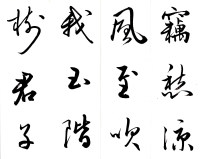 竊愁涼
風至吹
我玉階
樹君子